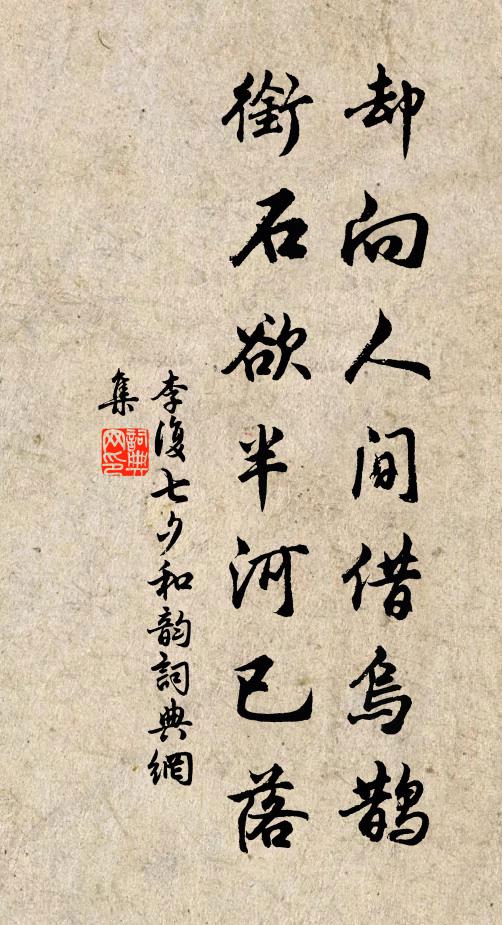 却向人间借乌鹊
衔石欲半河已落
李復七夕和韵詞典網
集
詞典网印